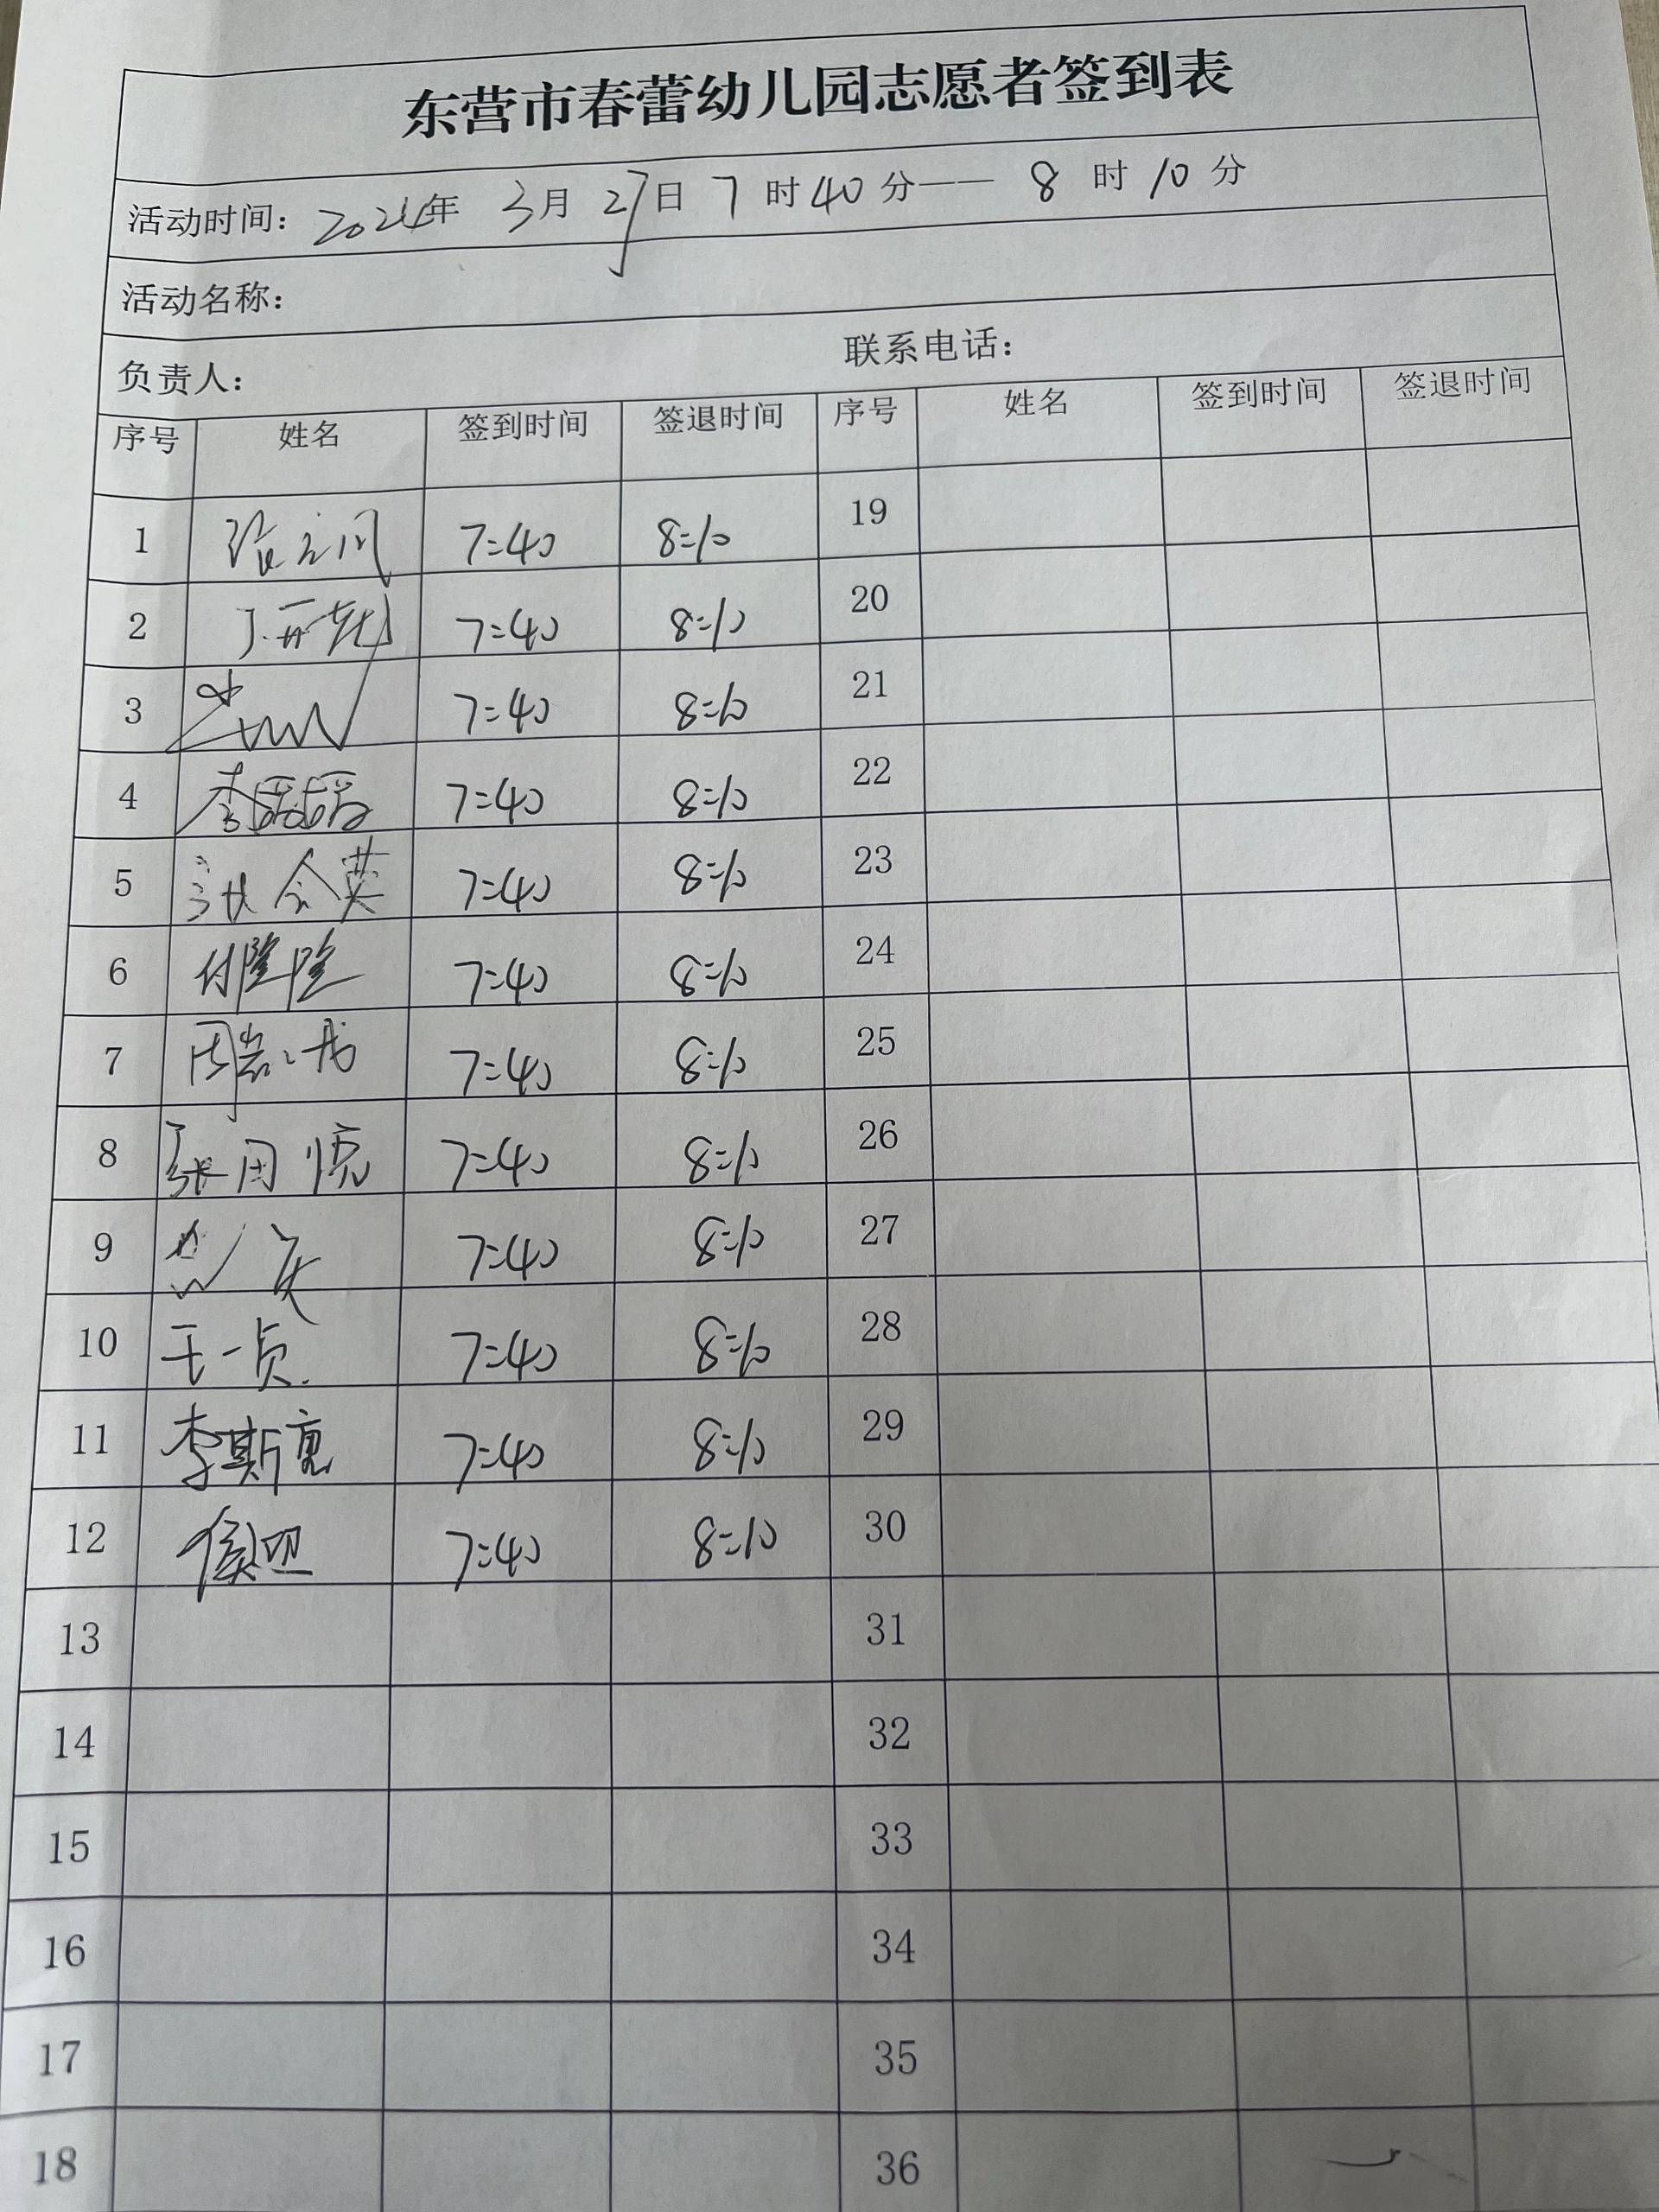 东营市春蕾幼儿园志愿者签到表
活动时间：2024年 3月 27日 7时40分—— 8时10分
活动名称：
负责人： 联系电话：
序号 姓名 签到时间 签退时间 序号 姓名 签到时间 签退时间
1 7:40 8:10 19
2 7:40 8:10 20
3 7:40 8:10 21
4 李 7:40 8:10 22
5 张会英 7:40 8:10 23
6 付隆隆 7:40 8:10 24
7 周 7:40 8:10 25
8 张 7:40 8:10 26
9 7:40 8:10 27
10 王一贞 7:40 8:10 28
11 李斯 7:40 8:10 29
12 侯 7:40 8:10 30
13 31
14 32
15 33
16 34
17 35
18 36